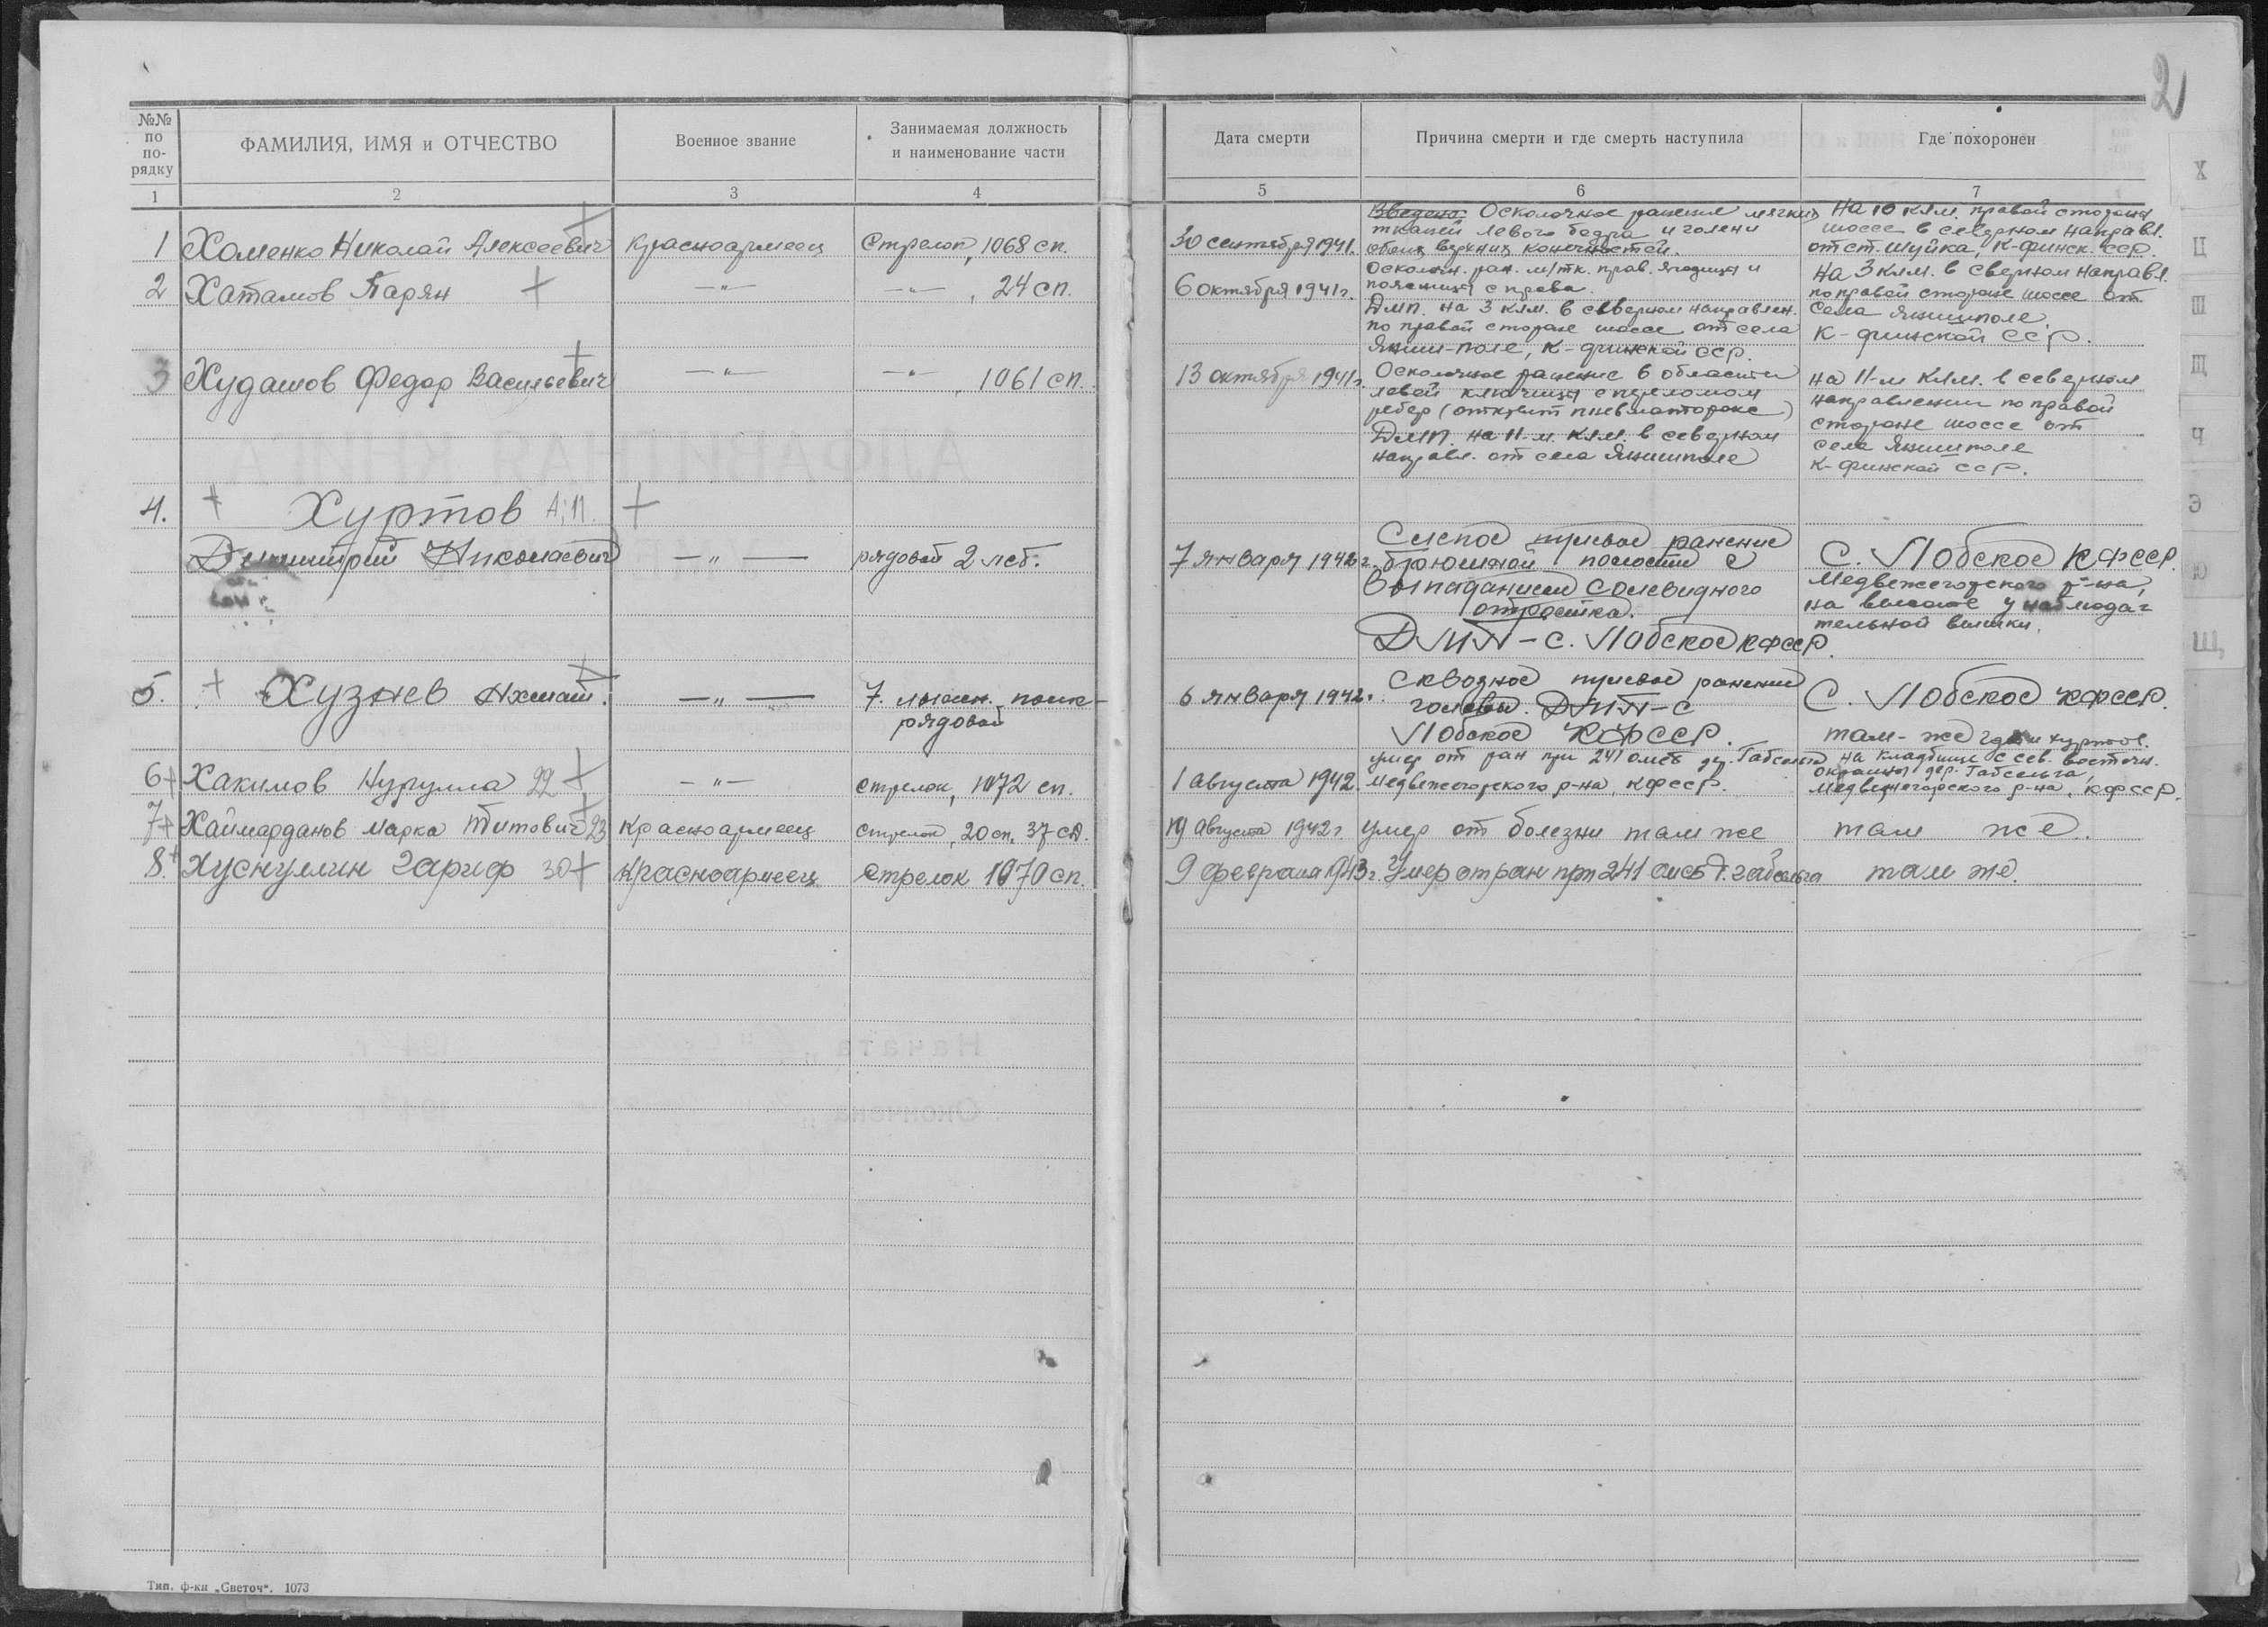 2
№№ по по-рядку
ФАМИЛИЯ, ИМЯ и ОТЧЕСТВО
Военное звание
Занимаемая должность
и наименование части
Дата смерти
Причина смерти и где смерть наступила
Где похоронен
1 2 3 4 5 6 7
1 Хоменко Николай Алексеевич Красноармеец Стрелок, 1068 сп. 30 сентября 1941.
Осколочное ранение мягких
тканей левого бедра и голени
обеих верхних конечностей.
На 10 клм. правой стороны
шоссе в северном направл.
от ст. Шуйка, К-финск. ССР.
2 Хатамов Парян —"— —"—, 24 сп. 6 октября 1941 г.
Осколочн. ран. м/тк. прав. ягодицы и
поясницы справа.
ДМП. на 3 клм. в северном направлен.
по правой стороне шоссе от села
Янши-поле, К-финской ССР.
На 3 клм. в северном направл.
по правой стороне шоссе от
села Янишполе
К-финской ССР.
3 Худашов Федор Васильевич —"— —"—, 1061 сп. 13 октября 1941 г.
Осколочное ранение в области
левой ключицы с переломом
ребер (открыт пневматоракс)
ДМП. на 11-м клм. в северном
направл. от села Янишполе
на 11-м клм. в северном
направлении по правой
стороне шоссе от
села Янишполе
К-финской ССР.
4. Хуртов А.П.
Димитрий Николаевич —"— рядовой 2 лсб. 7 января 1942 г.
Слепое пулевое ранение
брюшной полости с
выпаданием солевидного
отростка.
ДМП – с. Лобское КФССР.
С. Лобское КФССР.
Медвежегорского р-на,
на высоте у наблюда-
тельной вышки.
5. Хузнев Ахмат. —"— 7. лыжн. полк-
рядовой
6 января 1942.
Сквозное пулевое ранение
головы. ДМП – с
Лобское КФССР.
С. Лобское КФССР.
там-же где и Хуртов.
6 Хакимов Нурулла 22 —"— стрелок, 1072 сп. 1 августа 1942.
умер от ран при 241 омсб дер. Габсельга
Медвежегорского р-на, КФССР.
на кладбище с сев. восточн.
окраины дер. Габсельга,
Медвежегорского р-на, КФССР.
7 Хаймарданов Марка Титович 23 Красноармеец Стрелок, 20 сп, 37 сд. 19 августа 1942 г. умер от болезни там же там же.
8. Хуснуллин Гариф 30 Красноармеец Стрелок 1070 сп. 9 февраля 1943 г. Умер от ран при 241 омсб д. Габсельга там же.
Х
Ц
Ш
Щ
Ч
Э
Ю
Щ
Тип. ф-ки „Светоч“. 1073